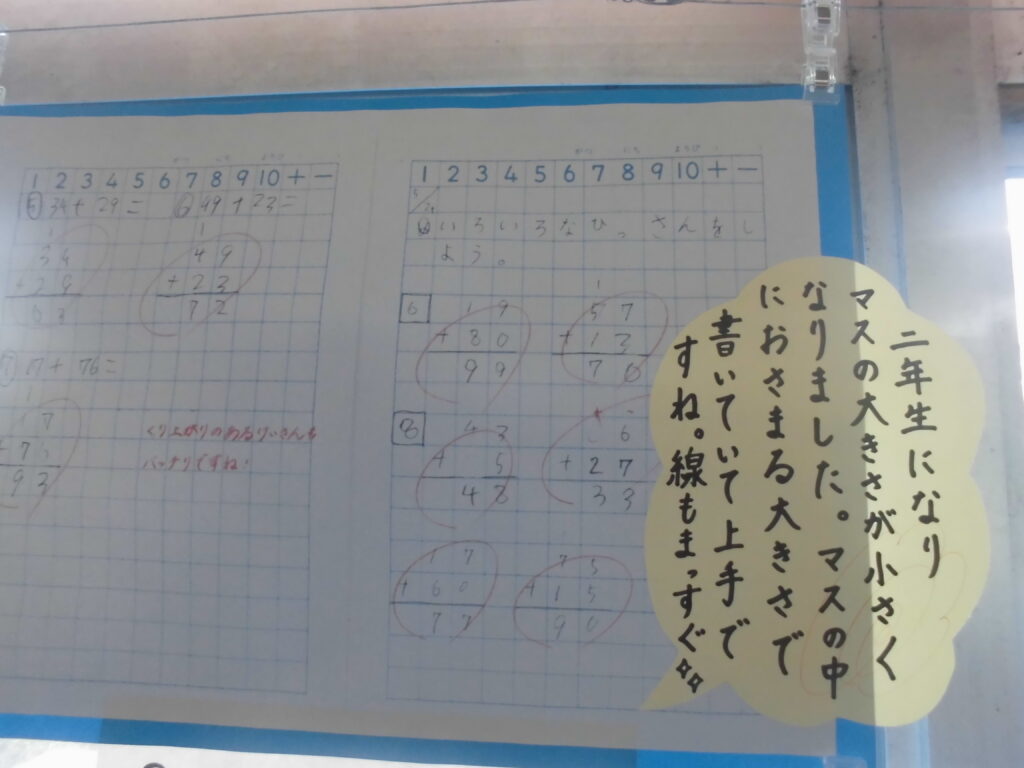 1 2 3 4 5 6 7 8 9 10 + −
⑤ 34+29= ⑥ 49+23=
1
34
+29
63
1
49
+23
72
⑦ 17+76=
1
17
+76
93
くり上がりのあるひっさんも
バッチリですね!
1 2 3 4 5 6 7 8 9 10 + −
いろいろなひっさんをし
よう。
6
19
+80
99
1
57
+13
70
8
43
+ 5
48
6
+27
33
17
+60
77
75
+15
90
二年生になり
マスの大きさが小さく
なりました。マスの中
におさまる大きさで
書いていて上手で
すね。線もまっすぐ